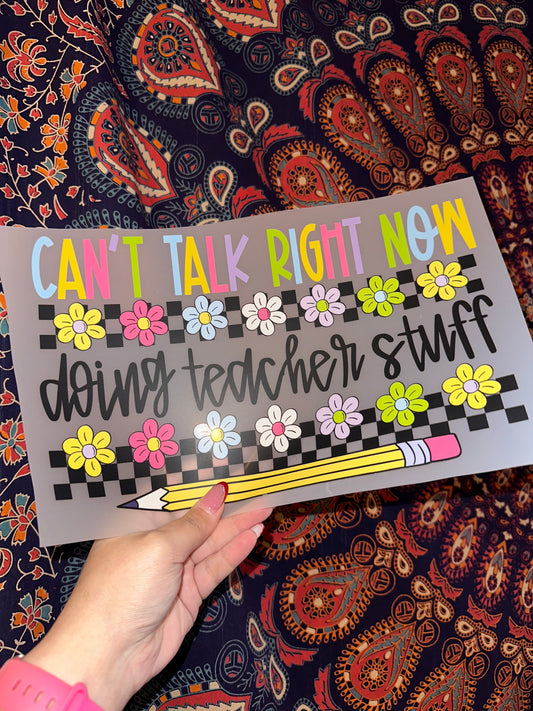 CAN'T TALK RIGHT NOW
doing teacher stuff